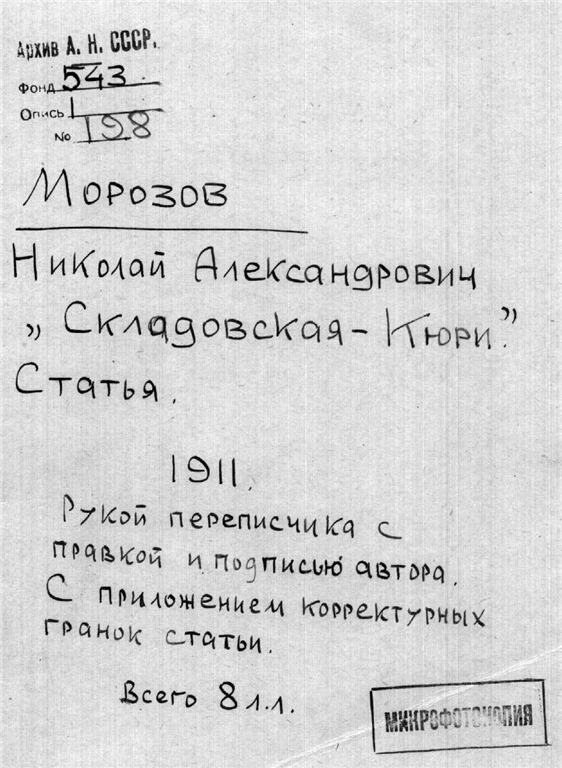 Архив А. Н. СССР.
Фонд 543
Опись 1
No 198
Морозов
Николай Александрович
„Складовская-Кюри."
Статья.
1911.
Рукой переписчика с
правкой и подписью автора.
С приложением корректурных
гранок статьи.
Всего 8 л.л.
МИКРОФОТОКОПИЯ